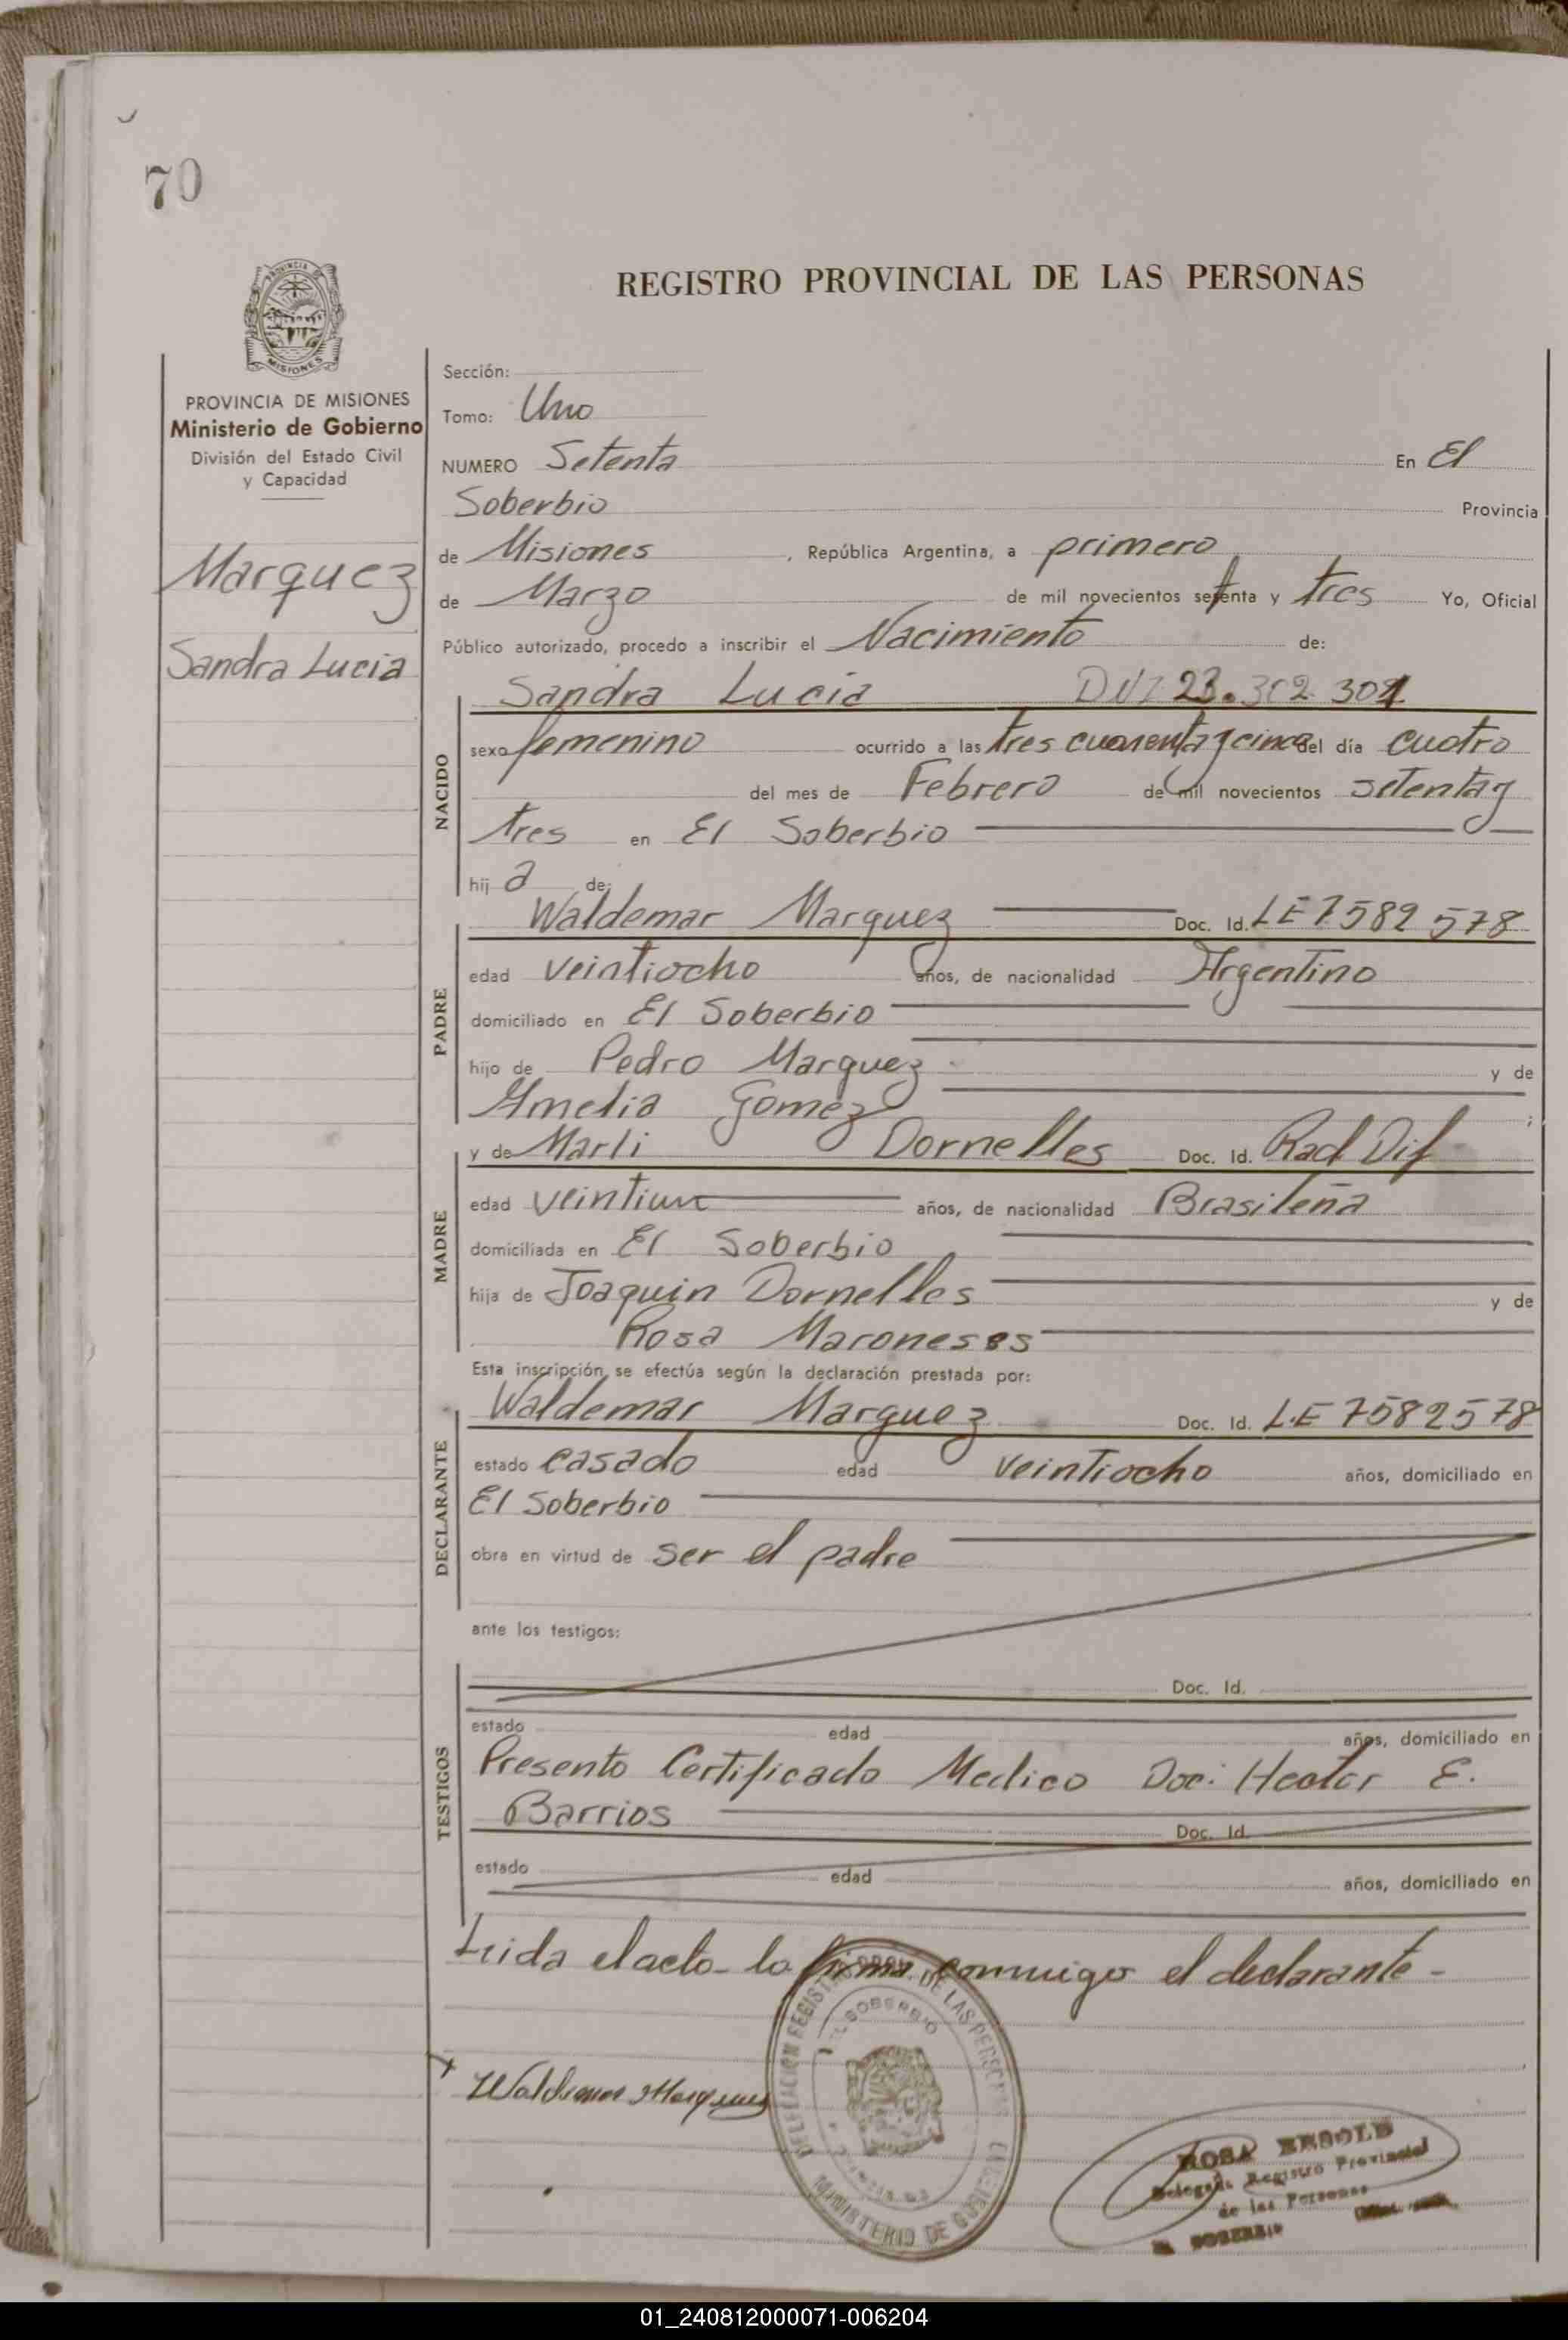 70
REGISTRO PROVINCIAL DE LAS PERSONAS
PROVINCIA DE
MISIONES
PROVINCIA DE MISIONES
Ministerio de Gobierno
División del Estado Civil
y Capacidad
Marquez
Sandra Lucia
Sección:
Tomo: Uno
NUMERO Setenta En El
Soberbio Provincia
de Misiones , República Argentina, a primero
de Marzo de mil novecientos setenta y tres Yo, Oficial
Público autorizado, procedo a inscribir el Nacimiento de:
Sandra Lucia DNI 23.302.301
NACIDO
sexo femenino ocurrido a las tres cuarenta y cinco del día cuatro
del mes de Febrero de mil novecientos setenta y
tres en El Soberbio
hij a de:
Waldemar Marquez Doc. Id. LE 7582 578
PADRE
edad veintiocho años, de nacionalidad Argentino
domiciliado en El Soberbio
hijo de Pedro Marquez y de
Amelia Gomez ;
y de Marli Dornelles Doc. Id. Rad Dif
MADRE
edad veintiun años, de nacionalidad Brasileña
domiciliada en El Soberbio
hija de Joaquin Dornelles y de
Rosa Maroneses
Esta inscripción se efectúa según la declaración prestada por:
Waldemar Marquez Doc. Id. LE 7582578
DECLARANTE
estado casado edad veintiocho años, domiciliado en
El Soberbio
obra en virtud de ser el padre
ante los testigos:
Doc. Id.
TESTIGOS
estado edad años, domiciliado en
Presento Certificado Medico Doc: Hector E.
Barrios Doc. Id.
estado edad años, domiciliado en
Leida el acto lo firma conmigo el declarante -
DELEGACION REGISTRO PROV. DE LAS PERSONAS
EL SOBERBIO
MINISTERIO DE GOBIERNO
Waldemar Marquez
ROSA
Delegada Registro Provincial
de las Personas
SOBERBIO
01_240812000071-006204